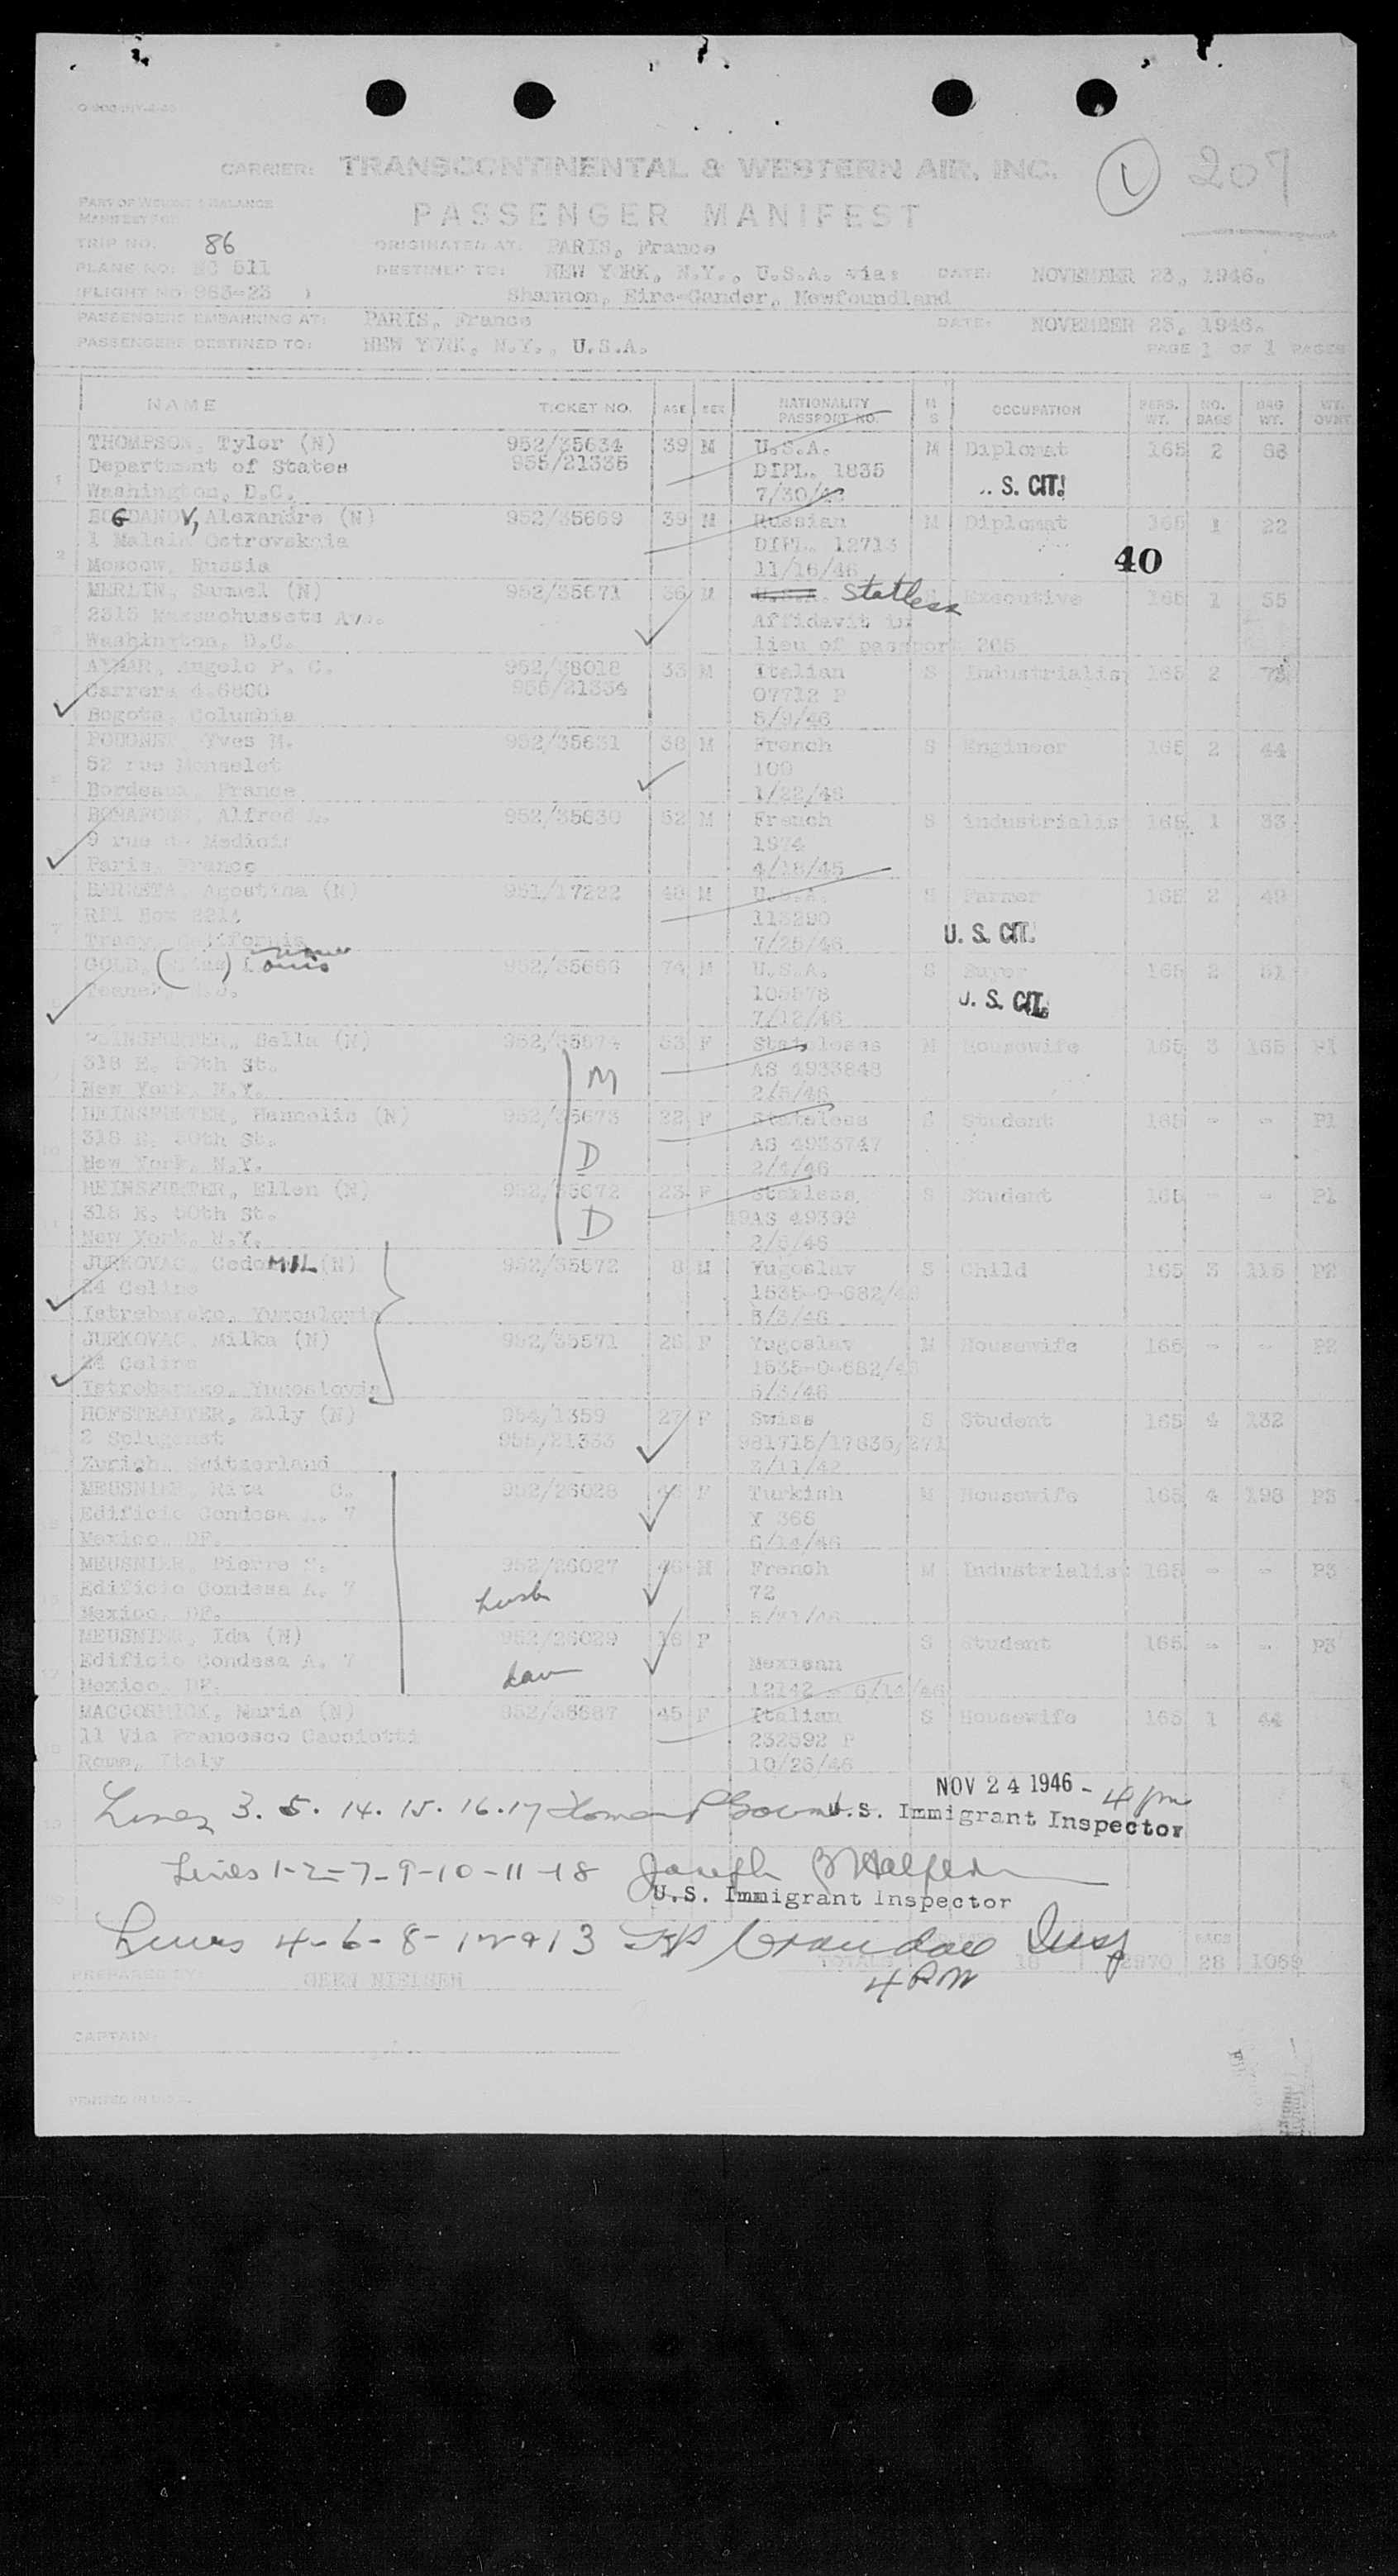 CARRIER: TRANSCONTINENTAL & WESTERN AIR, INC.
1 207
PASSENGER MANIFEST
TRIP NO. 86 ORIGINATED AT: PARIS, France
PLANE NO: NC 511 DESTINED TO: NEW YORK, N.Y., U.S.A. via: DATE: NOVEMBER 23, 1946.
(FLIGHT NO 963-23 ) Shannon, Eire-Gander, Newfoundland
PASSENGERS EMBARKING AT: PARIS, France DATE: NOVEMBER 23, 1946.
PASSENGERS DESTINED TO: NEW YORK, N.Y., U.S.A. PAGE 1 OF 1 PAGES
NAME TICKET NO. AGE SEX NATIONALITY PASSPORT NO. M S OCCUPATION PERS. WT. NO. BAGS BAG WT. WT. OVNT
THOMPSON, Tylor (N) 952/35634 39 M U.S.A. M Diplomat 165 2
Department of States 955/21335 DIPL. 1835
1 Washington, D.C. 7/30/46 S. CIT.
BOGDANOV, Alexandre (N) 952/35669 39 M Russian M Diplomat 165 1 22
1 Malaia Ostrovskaia DIPL. 12713
2 Moscow, Russia 11/16/46 40
MERLIN, Samuel (N) 952/35671 36 M Stateless S Executive 165 1 55
2315 Massachussets Av. Affidavit in
Washington, D.C. lieu of passport 265
AYMAR, Angelo P. C. 952/38018 33 M Italian S Industrialist 165 2
Carrera 4.6800 955/21334 07712 P
Bogota, Columbia 5/9/46
Yves M. 952/35631 38 M French S Engineer 165 2 44
52 rue Monselet 100
Bordeaux, France 1/22/46
Alfred 952/35630 52 M French S industrialis 165 1 33
9 rue de Medicis 1974
Paris, France 4/18/45
BARRETA, Agostina (N) 951/17222 48 M U.S.A. S Farmer 165 2 49
RF1 Box 221 113290
7 Tracy, California 7/25/46 U. S. CIT.
GOLD, ( ) Louis 952/35666 74 M U.S.A. S Buyer 165 2 51
Teaneck, N.J. 105578 U. S. CIT.
7/12/46
HEINSFURTER, Bella (N) 952/35674 53 F Stateless M Housewife 165 3 165 P1
318 E. 50th St. M AS 4933848
New York, N.Y. 2/5/46
HEINSFURTER, Hannelis (N) 952/35673 22 F Stateless S Student 165 - - P1
318 E. 50th St. D AS 4933747
New York, N.Y. 2/4/46
HEINSFURTER, Ellen (N) 952/35672 23 F Stateless S Student 165 - - P1
318 E. 50th St. D AS 49399
New York, N.Y. 2/5/46
JURKOVAC, CedoMIL (N) 952/35572 8 M Yugoslav S Child 165 3 116 P2
24 Celine 1535-0-682/46
Istrebarsko, Yugoslovia 5/3/46
JURKOVAC, Milka (N) 952/35571 28 F Yugoslav M Housewife 165 - - P2
24 Celine 1535-0-682/46
Istrebarsko, Yugoslovia 5/3/46
HOFSTEADTER, Elly (N) 954/1359 27 F Swiss S Student 165 4 132
2 Splugenst 955/21333 981715/17835/271
Zurich, Switzerland 3/11/42
MEUSNIER, Rita C. 952/26028 F Turkish M Housewife 165 4 198 P3
Edificio Condesa A. 7 Y 366
Mexico, DF. 6/14/46
MEUSNIER, Pierre 952/26027 46 M French M Industrialist 165 - - P3
Edificio Condesa A. 7 husb 72
Mexico, DF. 5/21/46
MEUSNIER, Ida (N) 952/26029 16 F S Student 165 - - P3
Edificio Condesa A. 7 dau Mexican
17 Mexico, DF. 12142 - 6/14/46
MACCORMICK, Maria (N) 952/38687 45 F Italian S Housewife 165 1 44
11 Via Francesco Cacciotti 232592 P
18 Rome, Italy 10/26/46
NOV 24 1946 - 4 pm
Lines 3. 5. 14. 15. 16. 17 U.S. Immigrant Inspector
Lines 1-2-7-9-10-11-18 Joseph B Halpern
U.S. Immigrant Inspector
Lines 4-6-8-12 & 13 Crandall Insp
TOTALS 18 2970 BAGS 28 1069
PREPARED BY: GREN NIELSEN 4 PM
CAPTAIN:
PRINTED IN U.S.A.